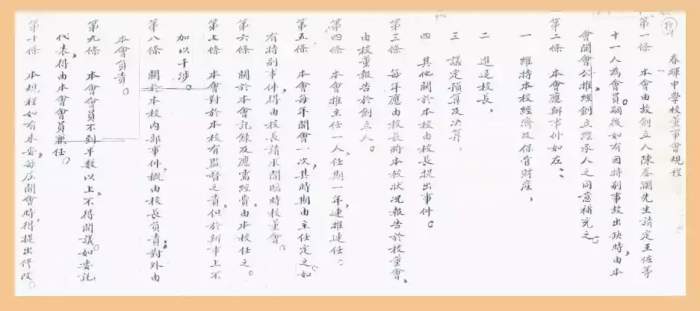 春暉中學校董事會規程
第一條 本會由故創立人陳春瀾先生請定王佐等
十一人為會員嗣後如有因特別事故出缺時由本
會開會公推經創立繼承人之同意補充之。
第二條 本會應辦事件如左：
一 維持本校經濟及保管財產，
二 進退校長，
三 議定預算及決算，
四 其他關於本校由校長提出事件。
第三條 每年應由校長將本校狀況報告於校董會，
由校董報告於創立人。
第四條 本會推主任一人任期一年連推連任：
第五條 本會每年開會一次其時期由主任定之如
有特別事件得由校長請求開臨時校董會。
第六條 關於本會記錄及應需經費由本校任之。
第七條 本會對於本校有監督之責但於新事上不
加以干涉。
第八條 關於本校內部事件概由校長負責對外由
本會負責。
第九條 本會會員不到半數以上，不得開議，如委託
代表，得由本會會員兼任。
第十條 本規程如有未盡，每屆開會時得提出修改。